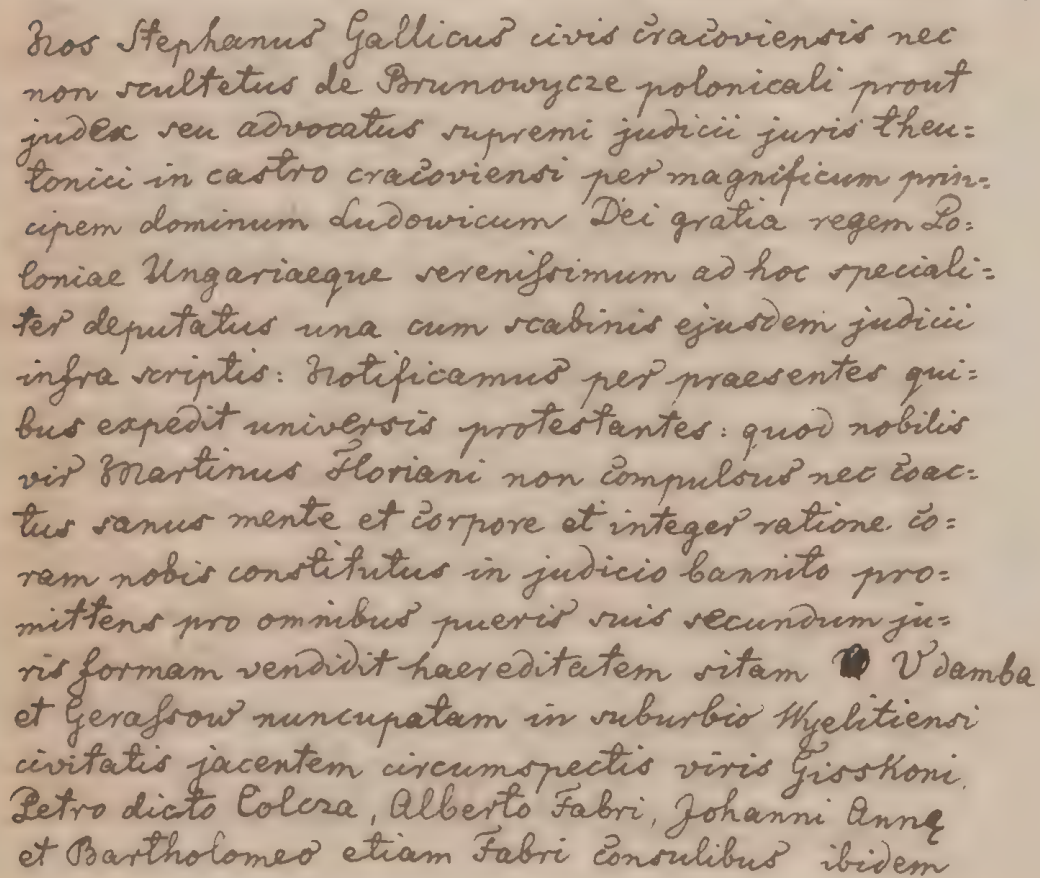 Nos Stephanus Gallicus civis cracoviensis nec
non scultetus de Brunowycze polonicali prout
judex seu advocatus supremi judicii juris theu=
tonici in castro cracoviensi per magnificum prin=
cipem dominum Ludowicum Dei gratia regem Po=
loniae Ungariaeque sereniſsimum ad hoc speciali=
ter deputatus una cum scabinis ejusdem judicii
infra scriptis: Notificamus per praesentes qui=
bus expedit universis protestantes: quod nobilis
vir Martinus Floriani non compulsus nec coac=
tus sanus mente et corpore et integer ratione co=
ram nobis constitutus in judicio bannito pro=
mittens pro omnibus pueris suis secundum ju=
ris formam vendidit haereditatem sitam Udamba
et Geraſsow nuncupatam in suburbio Wyelitiensi
civitatis jacentem circumspectis viris Gisskoni
Petro dicto Colcza, Alberto Fabri, Johanni Annę
et Bartholomeo etiam Fabri consulibus ibidem